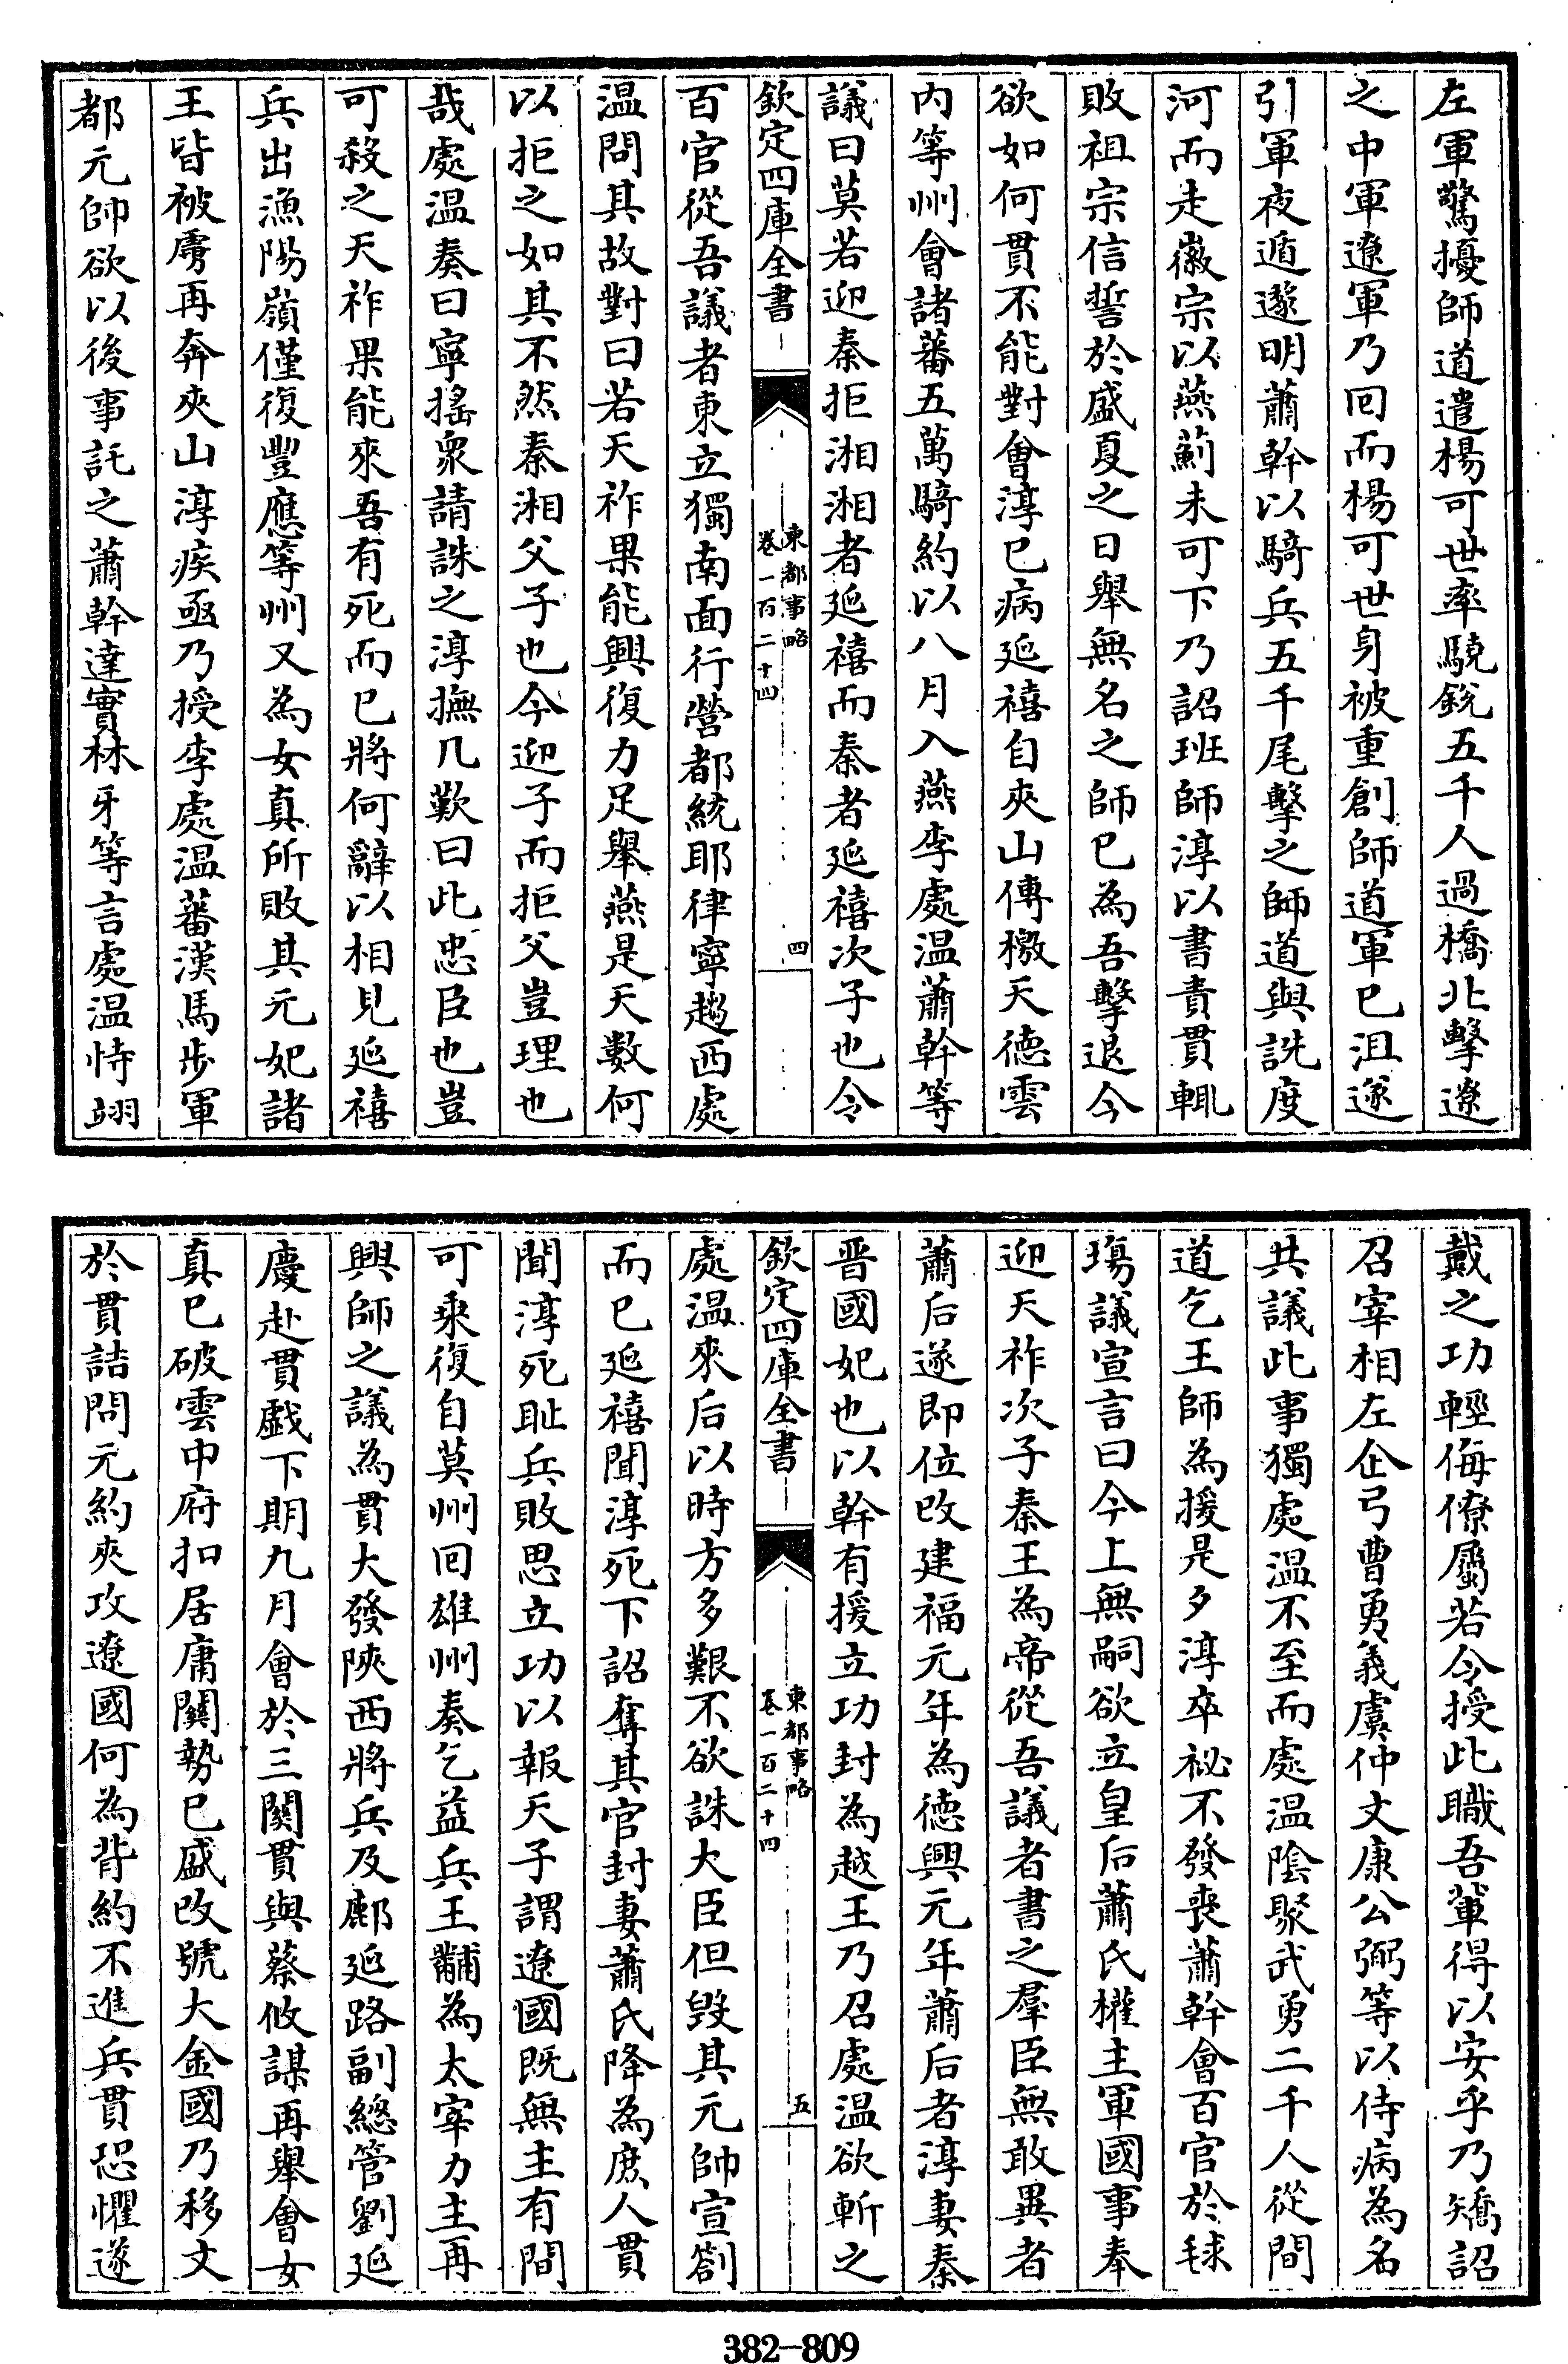 左軍驚擾師道遣楊可世率驍銳五千人過橋北擊遼
之中軍遼軍乃回而楊可世身被重創師道軍已沮遂
引軍夜遁遲明蕭幹以騎兵五千尾擊之師道與詵度
河而走徽宗以燕薊未可下乃詔班師淳以書責貫輒
敗祖宗信誓於盛夏之日舉無名之師已為吾擊退今
欲如何貫不能對會淳已病延禧自夾山傳檄天德雲
內等州會諸蕃五萬騎約以八月入燕李處温蕭幹等
議曰莫若迎秦拒湘湘者延禧而秦者延禧次子也令
欽定四庫全書
東都事略
卷一百二十四
四
百官從吾議者東立獨南面行營都統耶律寧趨西處
温問其故對曰若天祚果能興復力足舉燕是天數何
以拒之如其不然秦湘父子也今迎子而拒父豈理也
哉處温奏曰寧搖衆請誅之淳撫几歎曰此忠臣也豈
可殺之天祚果能來吾有死而已將何辭以相見延禧
兵出漁陽嶺僅復豐應等州又為女真所敗其元妃諸
王皆被虜再奔夾山淳疾亟乃授李處温蕃漢馬步軍
都元帥欲以後事託之蕭幹達實林牙等言處温恃翊
戴之功輕侮僚屬若令授此職吾輩得以安乎乃矯詔
召宰相左企弓曹勇義虞仲文康公弼等以侍病為名
共議此事獨處温不至而處温陰聚武勇二千人從間
道乞王師為援是夕淳卒祕不發喪蕭幹會百官於毬
塲議宣言曰今上無嗣欲立皇后蕭氏權主軍國事奉
迎天祚次子秦王為帝從吾議者書之羣臣無敢異者
蕭后遂即位改建福元年為德興元年蕭后者淳妻秦
晋國妃也以幹有援立功封為越王乃召處温欲斬之
欽定四庫全書
東都事略
卷一百二十四
五
處温來后以時方多艱不欲誅大臣但毀其元帥宣劄
而已延禧聞淳死下詔奪其官封妻蕭氏降為庶人貫
聞淳死耻兵敗思立功以報天子謂遼國既無主有間
可乘復自莫州回雄州奏乞益兵王黼為太宰力主再
興師之議為貫大發陝西將兵及鄜延路副總管劉延
慶赴貫戲下期九月會於三關貫與蔡攸謀再舉會女
真已破雲中府扣居庸關勢已盛改號大金國乃移文
於貫詰問元約夾攻遼國何為背約不進兵貫恐懼遂
382-809